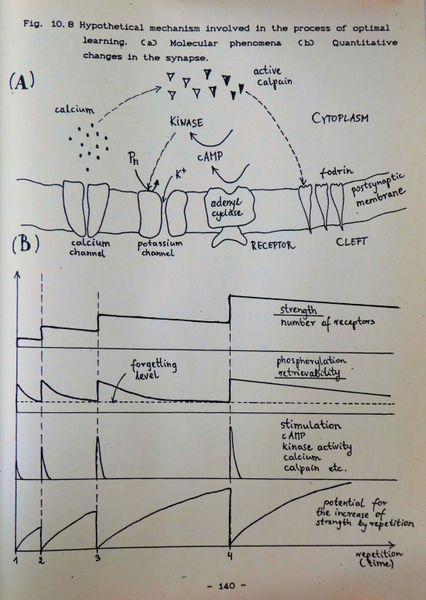 Fig. 10.8 Hypothetical mechanism involved in the process of optimal
learning. (a) Molecular phenomena (b) Quantitative
changes in the synapse.
(A)
active
calpain
calcium
KINASE
CYTOPLASM
Pn
K+
cAMP
fodrin
postsynaptic
membrane
adenyl
cyclase
calcium
channel
potassium
channel
RECEPTOR
CLEFT
(B)
strength
number of receptors
forgetting
level
phosphorylation
retrievability
stimulation
cAMP
kinase activity
calcium
calpain etc.
potential for
the increase of
strength by repetition
1 2 3 4
repetition
(time)
- 140 -